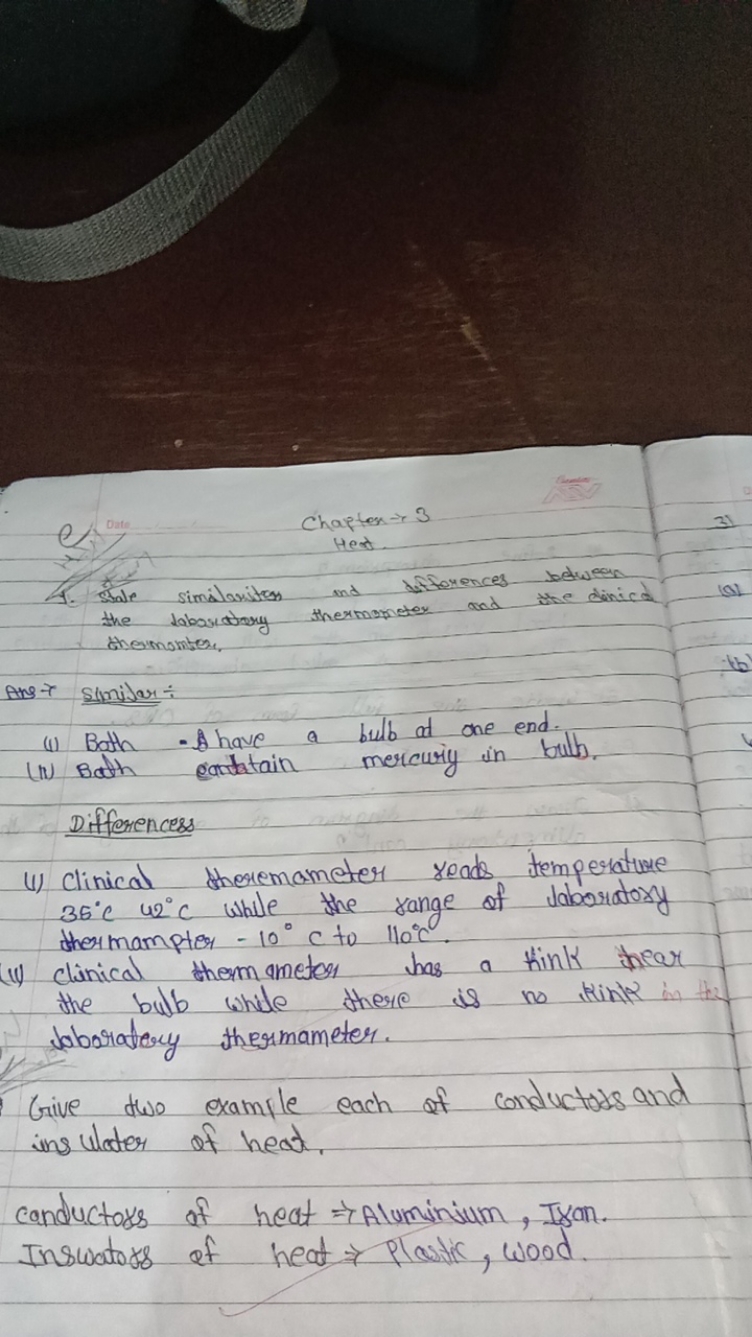 Date
Chapter → 3
Heat.
1. State similarities and differences between
the laboratory thermometer and the clinical
thermomter.
Ans → Similar :-
(i) Both have a bulb at one end.
(ii) Both contain mercuriy in bulb.
Differencess
(i) Clinical theremameter reads temperature
35°c 42°c while the range of laboratory
thermampter - 10° c to 110°c.
(ii) clinical thermameter has a kink near
the bulb while there is no kink in the
laboratery thermameter.
Give two example each of conductors and
insulater of heat.
conductors of heat ⇒ Aluminium, Iron.
Insulators of heat ⇒ Plastic, Wood.
31
(a)
(b)